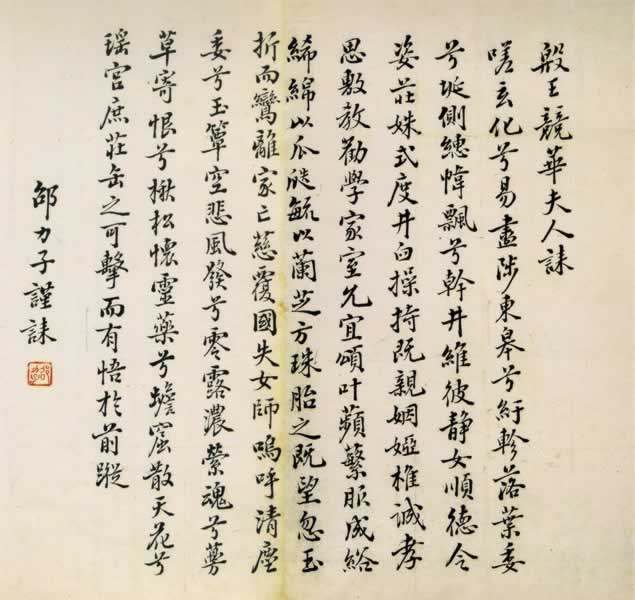 殷王競華夫人誄
嗟玄化兮易盡陟東皋兮紆軫落葉委
兮埏側繐幃飄兮幹井維彼静女順德令
姿莊姝式度井臼操持既親姻婭椎誠孝
思敷教勸學家室允宜頌叶蘋蘩服成綌
絺綿以瓜瓞毓以蘭芝方珠胎之既望忽玉
折而鸞離家亡慈覆國失女師嗚呼清塵
委兮玉簟空悲風發兮零露濃縈魂兮
草寄恨兮楸松懷靈藥兮蟾窟散天花兮
瑶宮庶莊缶之可擊而有悟於前蹤
邵力子謹誄